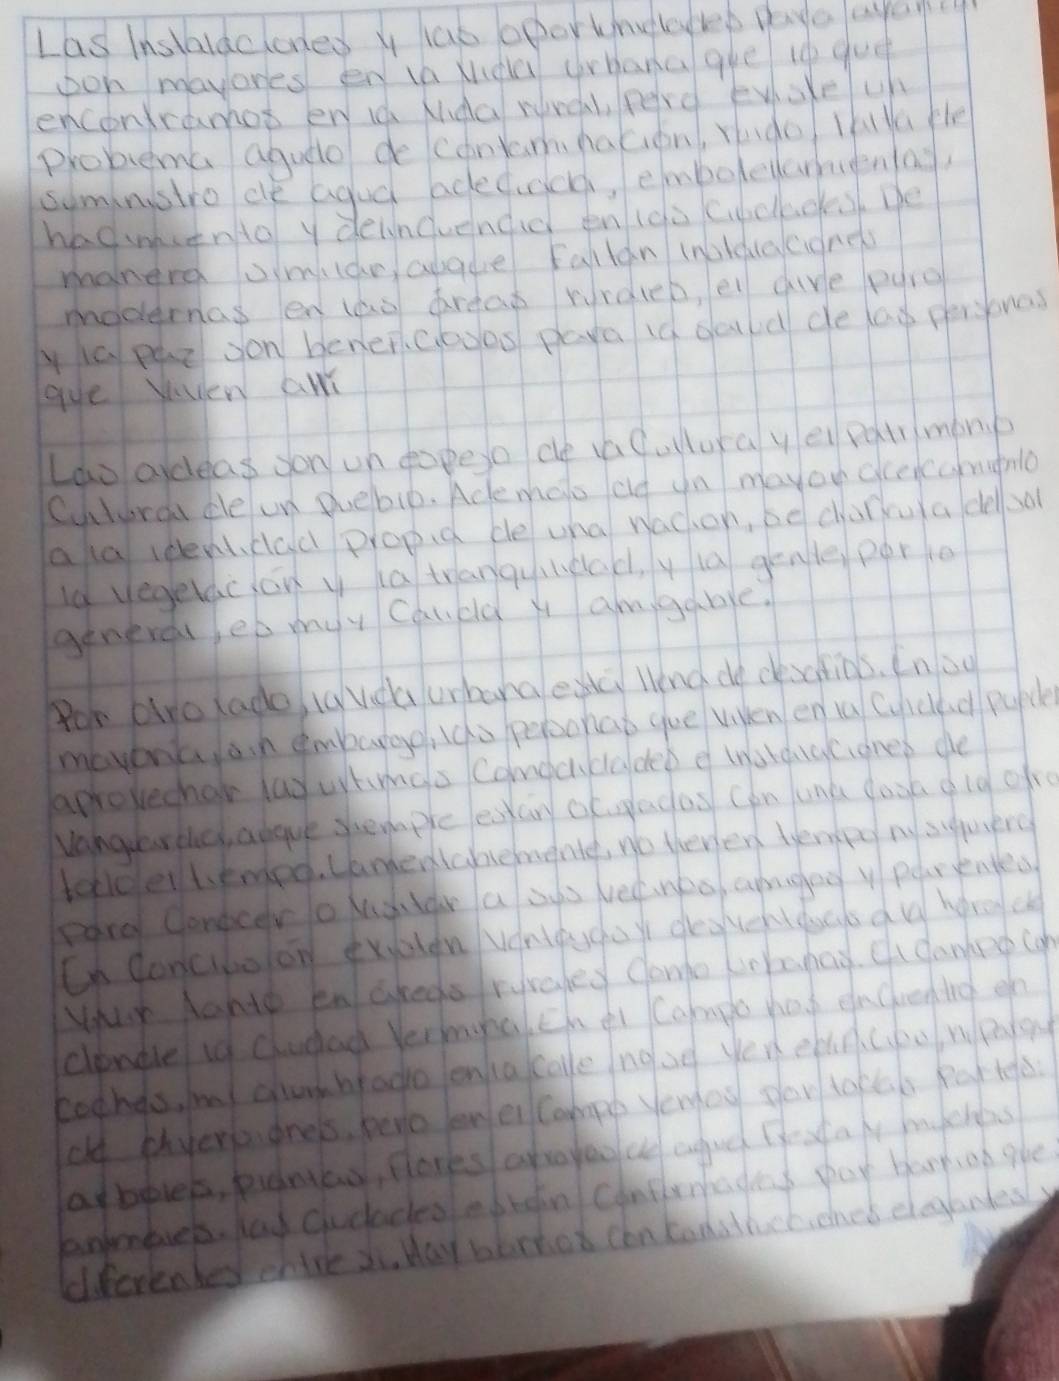 Las Instalaciones y las oportunidades para avanzar
son mayores en la Vida urbana que lo que
encontramos en la Vida rural, pero existe un
problema agudo de contaminación, ruido, falta de
suministro de agua adecuada, embotellamientas,
hacinamiento y delincuencia en las Ciudades. De
manera similar, auque Faltan instalaciones
modernas en las áreas rurales, el aire puro
y la paz son beneficiosos para la salud de las personas
que Viven allí
Las aldeas son un espejo de la Cultura y el patrimonio
Cultural de un pueblo. Además de un mayor acercamiento
a la identidad propia de una nación, se disfruta del sol
la vegetación y la tranquilidad, y la gente, por lo
general, es muy Calida y amigable.
Por otro lado, la vida urbana está llena de desafios. En su
mayoria, sin embargo, las personas que viven en la Cuidad pueden
aprovechar las ultimas Comodidades e instalaciones de
Vanguardia, auque siempre están ocupados con una cosa o la otra
todo el tiempo. Lamentablemente, no tienen tiempo ni siquiera
para Conocer o Visitar a sus vecinos, amigos y parientes.
En Conclusión existen ventajas y desventajas a la hora de
Vivir tanto en áreas rurales Como urbanas. El Campo
donde la ciudad termina. En el Campo no en
coches, ni alumbrado en la calle no se ven edificios, ni parques
de diversiones, pero en el Campo vemos por todas Partes:
arboles, plantas, flores arroyos de agua fresca y muchos
animales. las ciudades están Conformadas por barrios que
diferentes entre si. Hay barrios con construcciones elegantes y